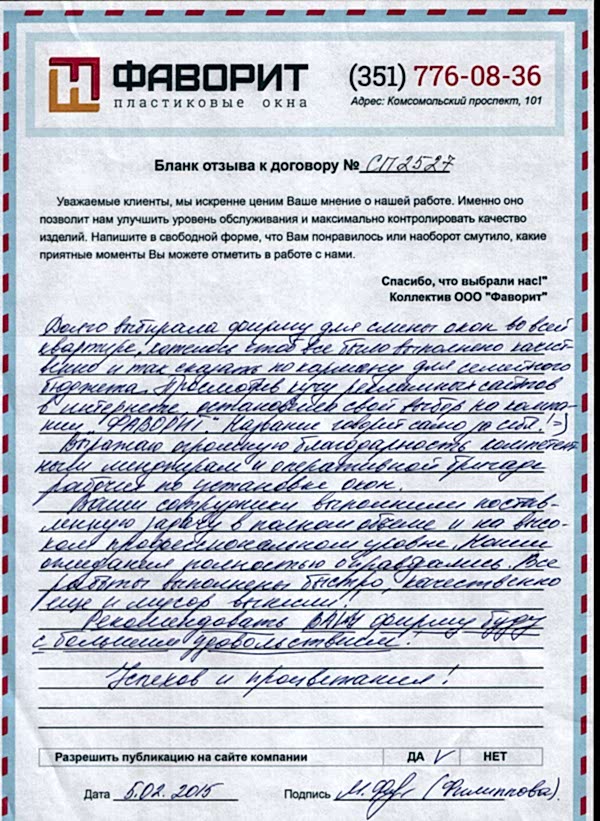 ФАВОРИТ
пластиковые окна
(351) 776-08-36
Адрес: Комсомольский проспект, 101
Бланк отзыва к договору № СП2527
Уважаемые клиенты, мы искренне ценим Ваше мнение о нашей работе. Именно оно
позволит нам улучшить уровень обслуживания и максимально контролировать качество
изделий. Напишите в свободной форме, что Вам понравилось или наоборот смутило, какие
приятные моменты Вы можете отметить в работе с нами.
Спасибо, что выбрали нас!"
Коллектив ООО "Фаворит"
Долго выбирала фирму для смены окон во всей
квартире, хотелось чтоб все было выполнено качест
венно и так сказать по карману для семейного
бюджета. Просмотрев кучу рекламных сайтов
в интернете, остановила свой выбор на компа-
нии "ФАВОРИТ". Название говорит само за себя! =)
Выражаю огромную благодарность компетент
ными менджирам и оперативной бригаде
рабочих по установке окон.
Ваши сотрудники выполнили постав-
ленную задачу в полном объеме и на высо-
ком профессиональном уровне, Наши
ожидания полностью оправдались. Все
работы выполнены быстро, качественно
еще и мусор вынесли!
Рекомендовать ВАШУ фирму буду
с большим удовольствием!
Успехов и процветания!
Разрешить публикацию на сайте компании ДА V НЕТ
Дата 5.02.2015 Подпись (Филиппова).